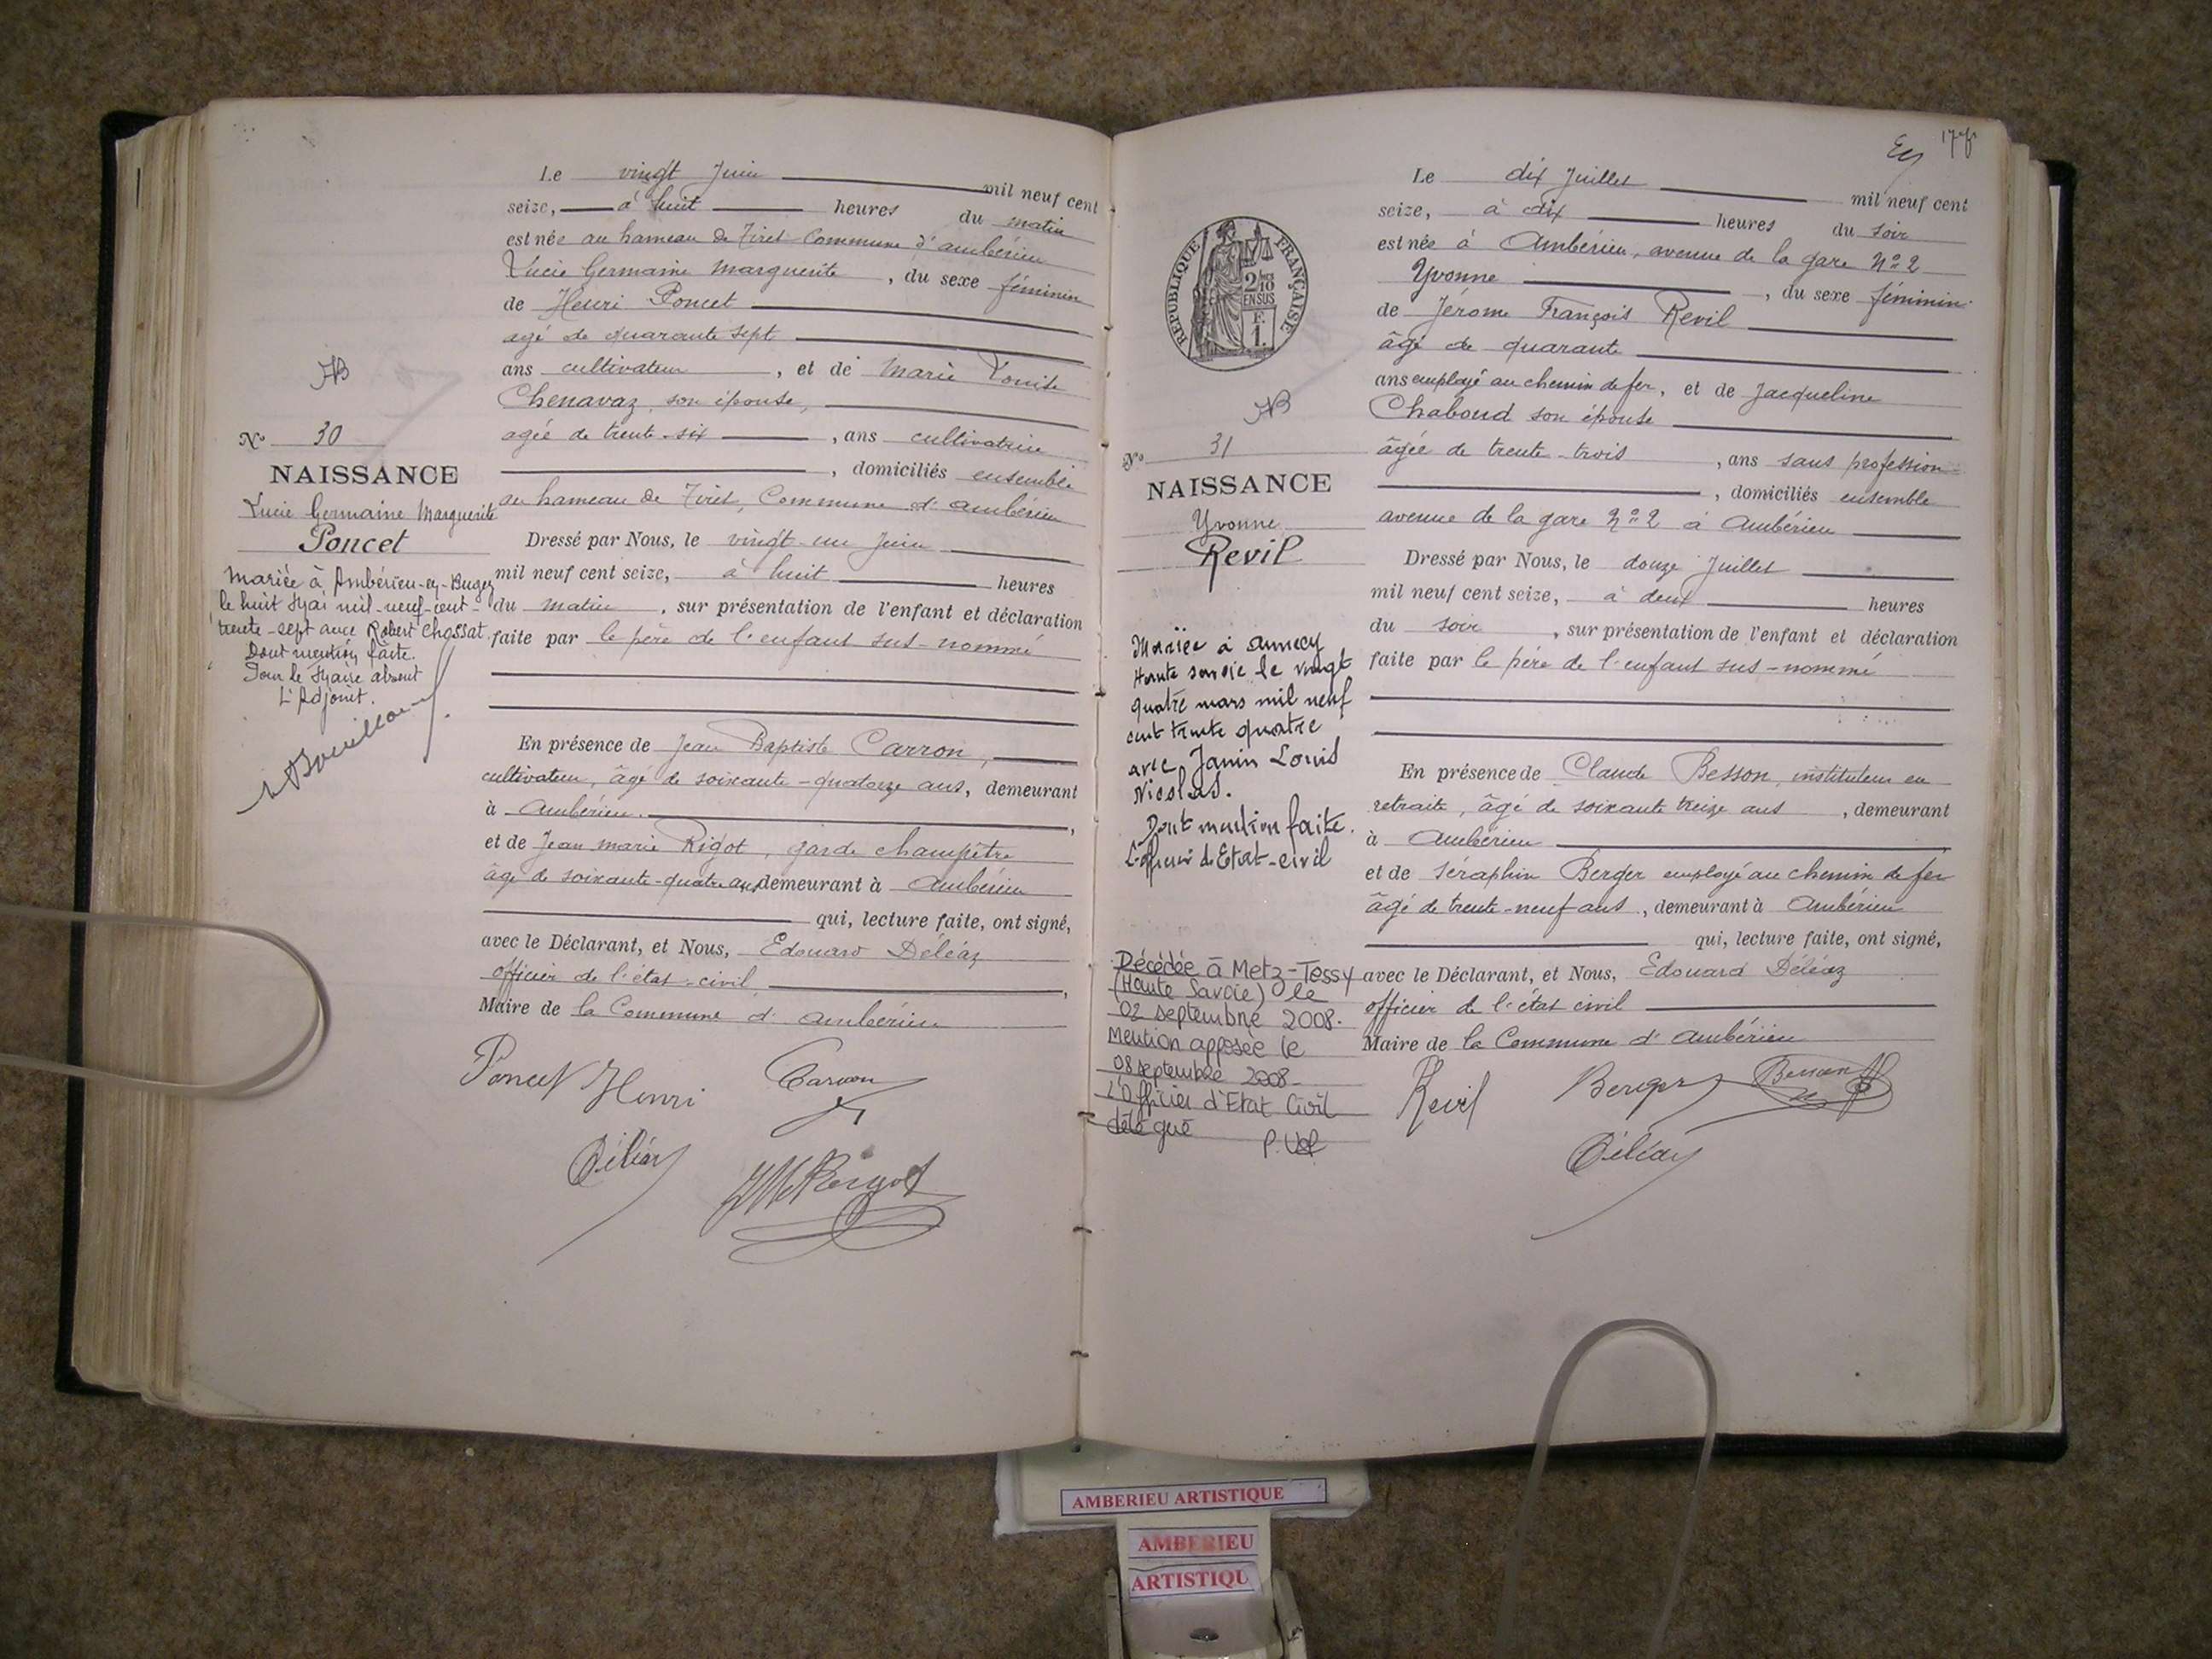 Le vingt Juin mil neuf cent
seize, à huit heures du matin
est née au hameau de Tiret Commune d'ambérieu
Lucie Germaine Marguerite, du sexe féminin
de Henri Poncet
agé de quarante sept
ans cultivateur, et de Marie Louise
Chenavaz, son épouse,
agée de trente-six, ans cultivatrice
, domiciliés ensemble
au hameau de Tiret, Commune d'ambérieu
Dressé par Nous, le vingt-un Juin
mil neuf cent seize, à huit heures
du matin, sur présentation de l'enfant et déclaration
faite par le père de l'enfant sus-nommé
En présence de Jean Baptiste Carron,
cultivateur, âgé de soixante-quatorze ans, demeurant
à Ambérieu,
et de Jean marie Rigot, garde champêtre
âgé de soixante-quatre ans, demeurant à Ambérieu
qui, lecture faite, ont signé,
avec le Déclarant, et Nous, Edouard Déléaz
officier de l'état-civil,
Maire de la Commune d'ambérieu
Poncet Henri Carron
Déléaz JM Rigot
AB
N° 30
NAISSANCE
Lucie Germaine Marguerite
Poncet
Mariée à Ambérieu-en-Bugey
le huit Mai mil-neuf-cent-
trente-sept avec Robert Chossat.
Dont mention faite.
Pour le Maire absent
L'Adjoint.
178
Le dix Juillet mil neuf cent
seize, à dix heures du soir
est née à Ambérieu, avenue de la gare N° 2
Yvonne, du sexe féminin
de Jérome François Revil
âgé de quarante
ans employé au chemin de fer, et de Jacqueline
Chaboud son épouse
âgée de trente-trois, ans sans profession
, domiciliés ensemble
avenue de la gare N° 2 à Ambérieu
Dressé par Nous, le douze Juillet
mil neuf cent seize, à deux heures
du soir, sur présentation de l'enfant et déclaration
faite par le père de l'enfant sus-nommé
En présence de Claude Besson, instituteur en
retraite, âgé de soixante treize ans, demeurant
à Ambérieu
et de Séraphin Berger employé au chemin de fer
âgé de trente-neuf ans, demeurant à Ambérieu
qui, lecture faite, ont signé,
avec le Déclarant, et Nous, Edouard Déléaz
officier de l'état civil
Maire de la Commune d'Ambérieu
Revil Berger Besson
Déléaz
REPUBLIQUE FRANÇAISE
2/10
EN SUS
F.
1.
AB
N° 31
NAISSANCE
Yvonne
Revil
Mariée à Annecy
Haute savoie le vingt
quatre mars mil neuf
cent trente quatre
avec Janin Louis
Nicolas.
Dont mention faite.
L'officier d'Etat-civil
Décédée à Metz-Tessy
(Haute Savoie) le
02 septembre 2008.
Mention apposée le
08 septembre 2008.
L'Officier d'Etat Civil
délégué
AMBERIEU ARTISTIQUE
AMBERIEU
ARTISTIQU